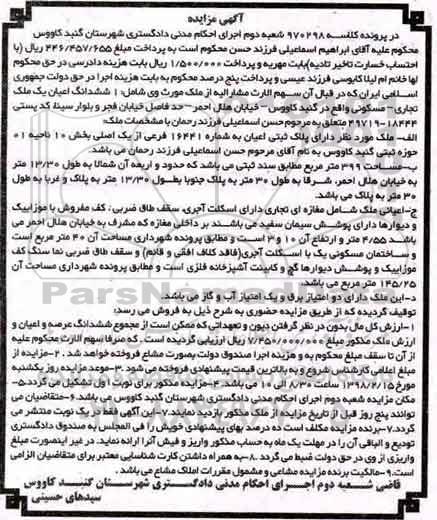 آگهی مزایده
در پرونده کلاسه ۹۷۰۲۹۸ شعبه دوم اجرای احکام مدنی دادگستری شهرستان گنبد کاووس
محکوم علیه آقای ابراهیم اسماعیلی فرزند حسن محکوم است به پرداخت مبلغ ۴۴۶/۴۵۷/۶۵۵ ریال (با
احتساب خسارت تاخیر تادیه) بابت مهریه و پرداخت ۱/۵۰۰/۰۰۰ ریال بابت هزینه دادرسی در حق محکوم
لها خانم ام لیلا کابوسی فرزند عیسی و پرداخت پنج درصد محکوم به بابت هزینه اجرا در حق دولت جمهوری
اسلامی ایران که در قبال آن سهم الارث مشارالیه از ملک مورث وی شامل: ۱ ششدانگ اعیان یک ملک
تجاری – مسکونی واقع در گنبد کاووس – خیابان هلال احمر – حد فاصل خیابان فجر و بلوار سینا، کد پستی
۱۸۴۴۴-۴۹۷۱۹ متعلق به مرحوم حسن اسماعیلی فرزند رحمان با مشخصات ملک:
الف- ملک مورد نظر دارای پلاک ثبتی اعیان به شماره ۱۶۴۴۱ فرعی از یک اصلی بخش ۱۰ ناحیه ۰۱
حوزه ثبتی گنبد کاووس به نام آقای مرحوم حسن اسماعیلی فرزند رحمان می باشد.
ب- مساحت ۳۹۹ متر مربع مطابق سند ثبتی می باشد که حدود و اربعه آن شمالا به طول ۱۳/۳۰ متر
به خیابان هلال احمر، شرقا به طول ۳۰ متر به پلاک جنوبا بطول ۱۳/۳۰ متر به پلاک و غربا به طول
۳۰ متر به پلاک می باشد.
ج- اعیانی ملک شامل مغازه ای تجاری دارای اسکلت آجری، سقف طاق ضربی، کف مفروش با موزاییک
و دیوارها دارای پوشش سیمان سفید می باشند بر داخلی مغازه که مشرف به خیابان هلال احمر می
باشد ۴/۵۵ متر و ارتفاع آن ۳ و ۱۰ است و مطابق پرونده شهرداری مساحت آن ۴۰ متر مربع است
و ساختمان مسکونی یک با اسکلت آجری (فاقد کلاف افقی و قائم) و سقف طاق ضربی نما سنگ کف
موزاییک و پوشش دیوارها گچ و کابینت آشپزخانه فلزی است و مطابق پرونده شهرداری مساحت آن
۱۴۵/۲۵ متر مربع می باشد.
د- این ملک دارای دو امتیاز برق و یک امتیاز آب و گاز می باشد.
توقیف گردیده که از طریق مزایده حضوری به شرح ذیل به فروش می رسد:
۱- ارزش کل مال بدون در نظر گرفتن دیون و تعهداتی که ممکن است از مجموع ششدانگ عرصه و اعیان و
ارزش ملک مذکور مبلغ ۷/۴۵۰/۰۰۰/۰۰۰ ریال ارزیابی گردیده است. که صرفا سهم الارث محکوم علیه
از آن تا سقف مبلغ محکوم به و هزینه اجرا صندوق دولت بصورت مشاع فروخته خواهد شد. ۲- مزایده از
مبلغ اعلامی کارشناس شروع و به بالاترین قیمت پیشنهادی فروخته می شود ۳- موعد مزایده روز یکشنبه
مورخ ۱۳۹۸/۲/۱۵ ساعت ۸/۳۰ الی ۱۰ می باشد. ۴- مزایده مذکور برای نوبت اول تشکیل می گردد ۵-
مکان مزایده شعبه دوم اجرای احکام مدنی دادگستری شهرستان گنبد کاووس می باشد ۶- متقاضیان می
توانند پنج روز قبل از تاریخ مزایده از ملک مذکور بازدید نمایند. ۷- این آگهی فقط در یک نوبت منتشر می
گردد. ۷- برنده مزایده مکلف است ده درصد بهای پیشنهادی خویش را فی المجلس به صندوق دادگستری
تودیع و الباقی آن را در مهلت یک ماه به حساب مذکور واریز و فیش آنرا ارائه نماید. در غیر اینصورت مبلغ
واریزی از وی در حق دولت ضبط می گردد. ۸- به همراه داشتن کارت شناسایی معتبر برای متقاضیان الزامی
است. ۹- مالکیت برنده مزایده مشاعی و مشمول مقررات املاک مشاع می باشد.
قاضی شعبه دوم اجرای احکام مدنی دادگستری شهرستان گنبد کاووس
سیدهای حسینی